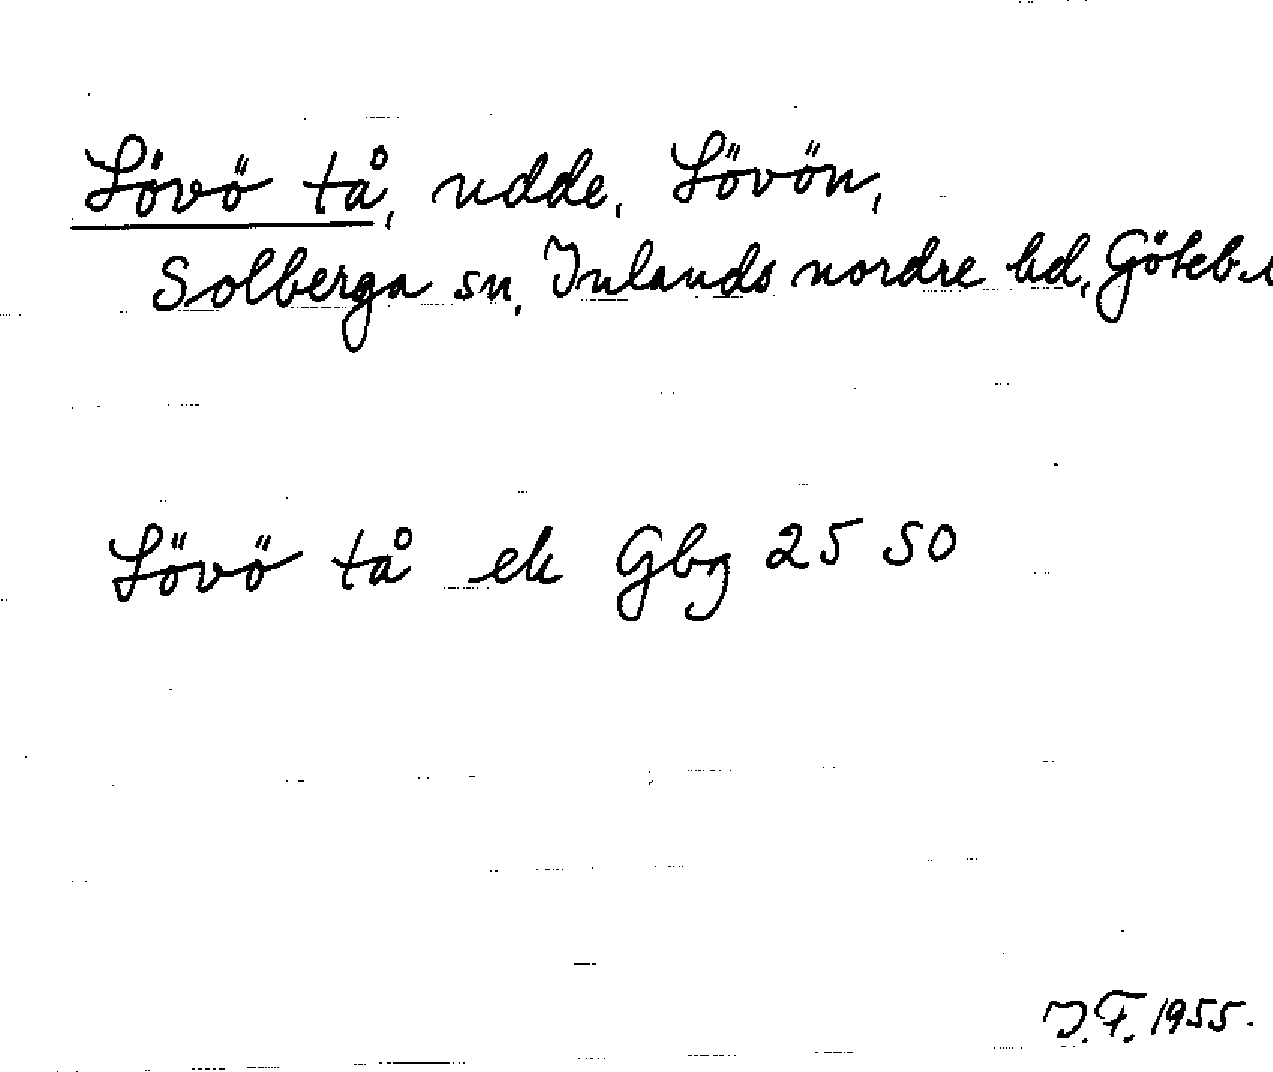 Lövö tå, udde, Lövön,
Solberga sn, Inlands nordre hd, Göteb.
Lövö tå ek Gbg 25 50
J.F. 1955.